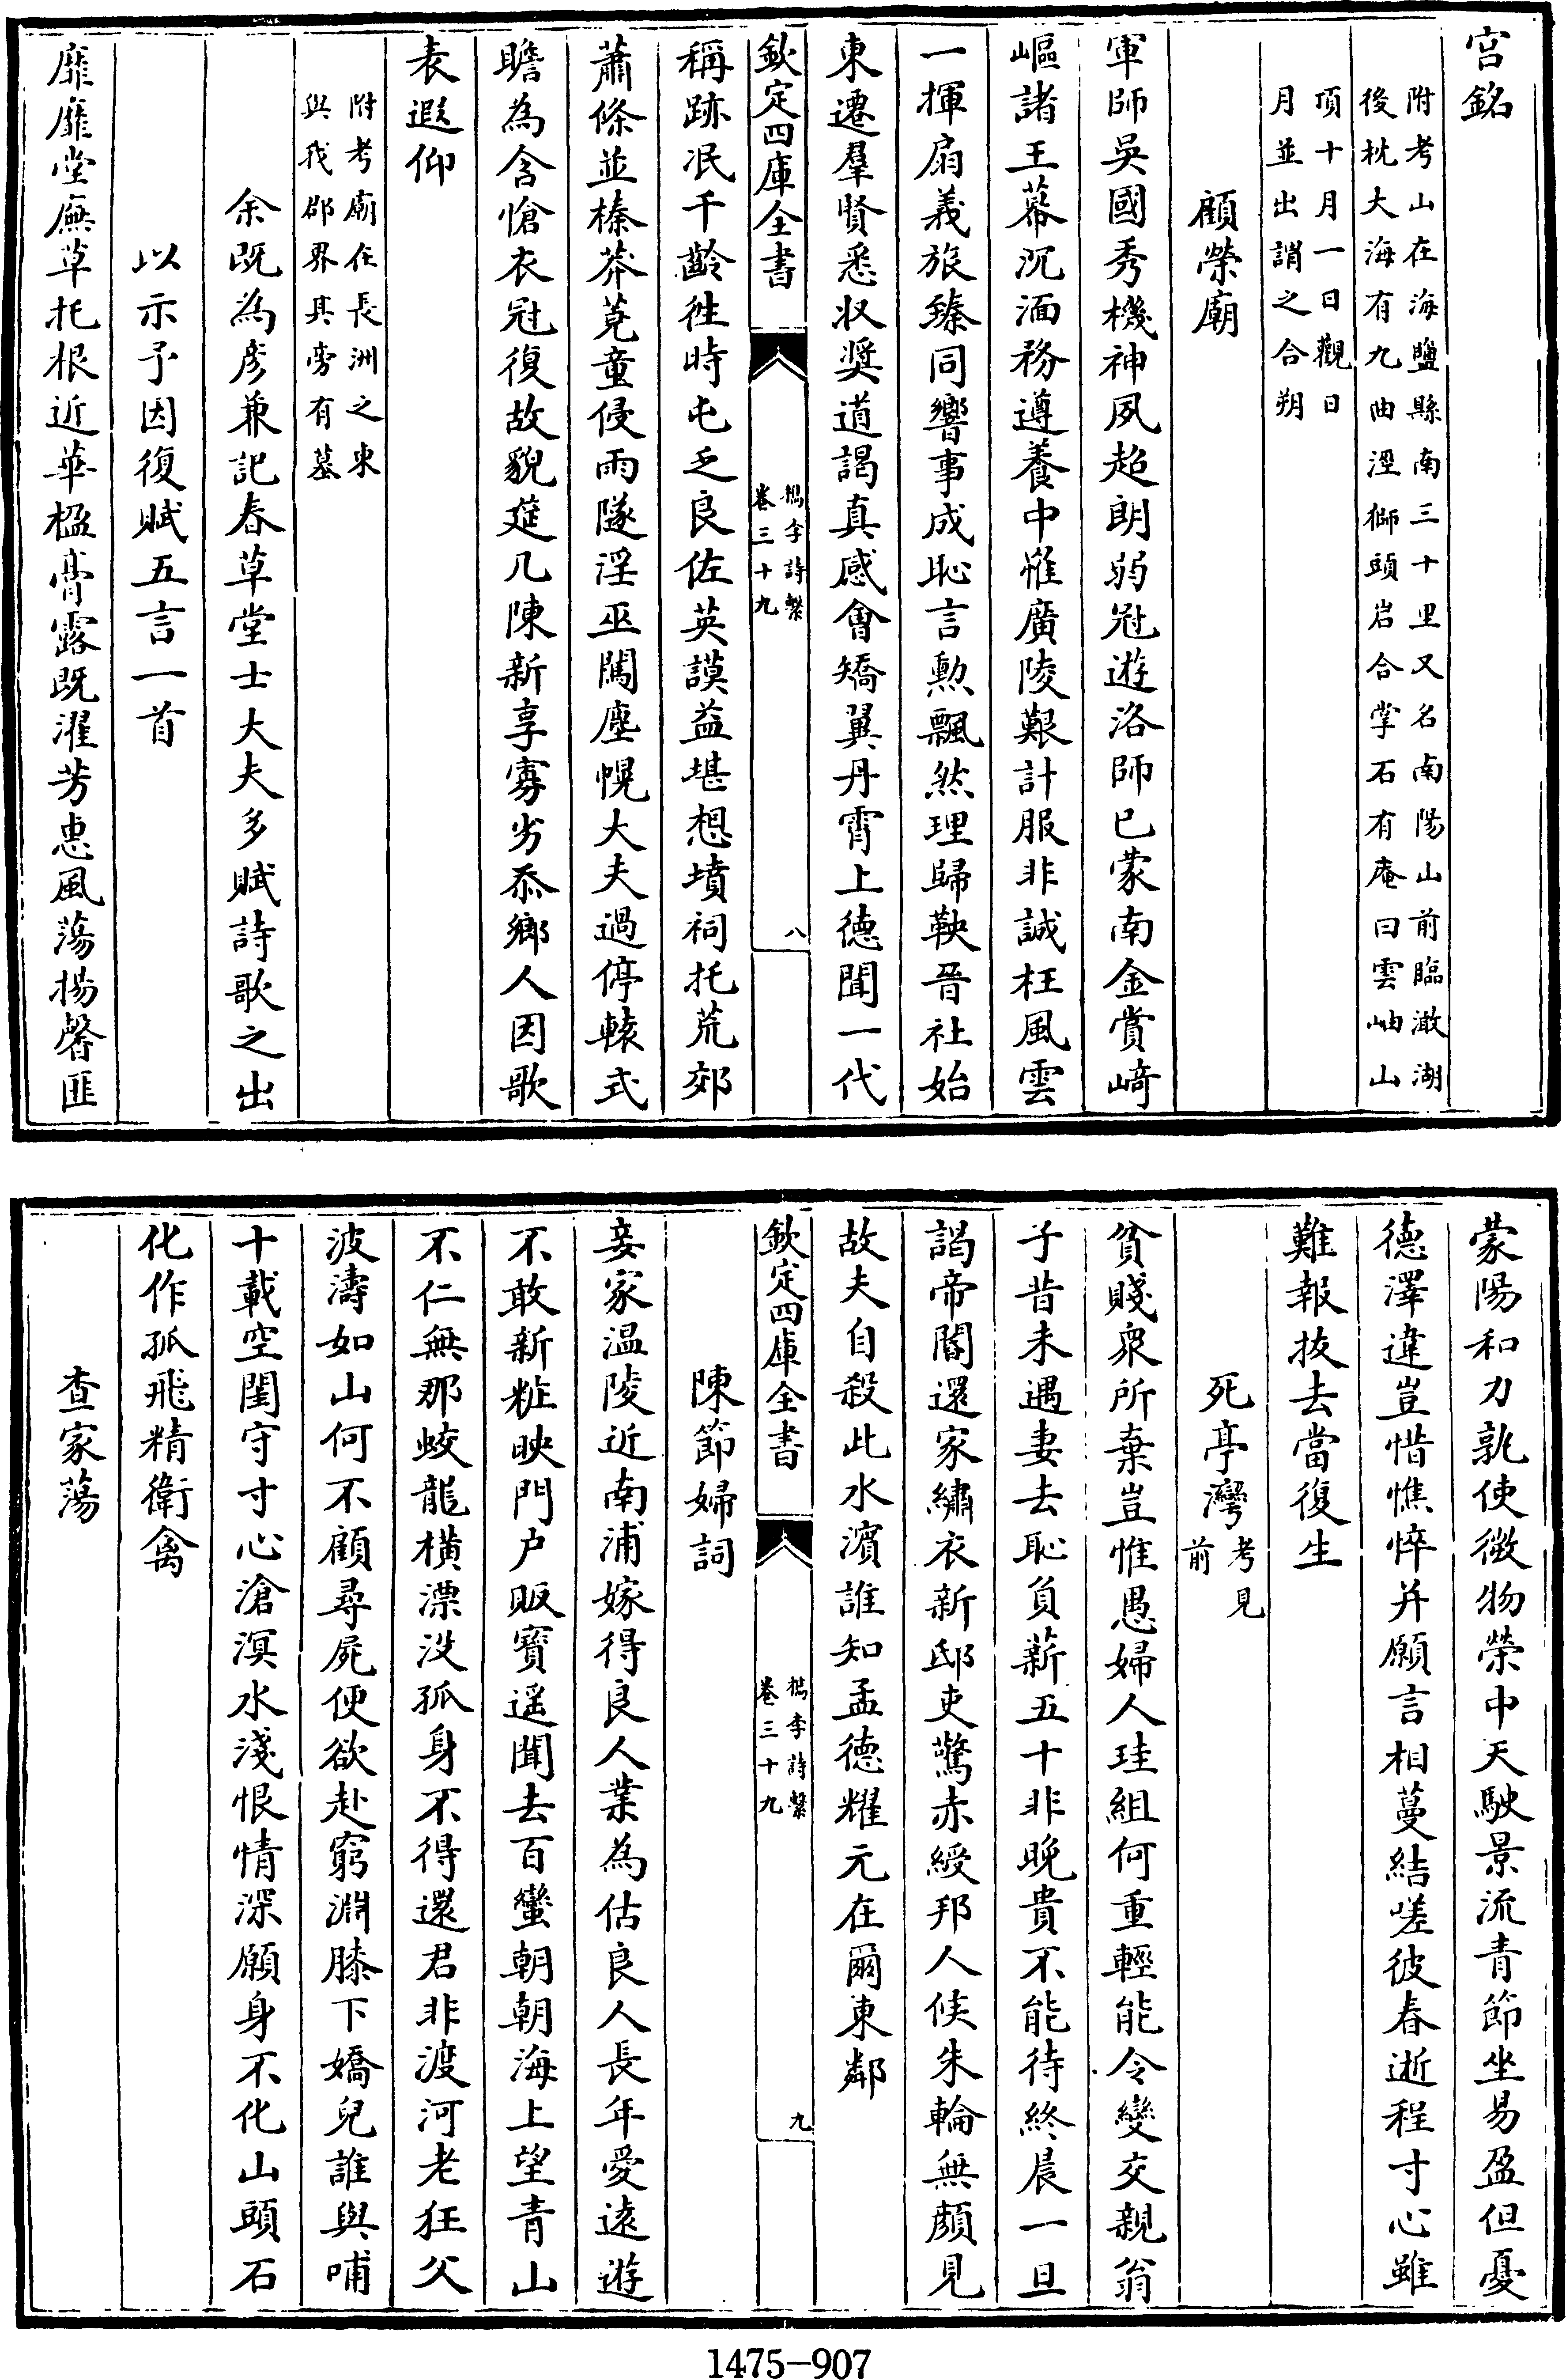 宫銘
附考山在海鹽縣南三十里又名南陽山前臨澉湖
後枕大海有九曲溼獅頭岩合掌石有庵曰雲岫山
項十月一日觀日
月並出謂之合朔
顧榮廟
軍師吳國秀機神夙超朗弱冠遊洛師已蒙南金賞﨑
嶇諸王幕沉湎務遵養中惟廣陵艱計服非誠枉風雲
一揮扇義旅臻同響事成恥言勲飄然理歸鞅晉社始
東遷羣賢悉收奨道謁真感會矯翼丹霄上德聞一代
欽定四庫全書
檇李詩繫
卷三十九
八
稱跡泯千齡徃時屯乏良佐英謨益堪想墳祠托荒郊
蕭條並榛莽蕘童侵雨隧淫巫闖塵幌大夫過停轅式
瞻為含愴衣冠復故貌筵几陳新享寡劣忝鄉人因歌
表遐仰
附考廟在長洲之東
與我郡界其旁有墓
余既為彥兼記春草堂士大夫多賦詩歌之出
以示予因復賦五言一首
靡靡堂廡草托根近華楹膏露既濯芳惠風蕩揚馨匪
蒙陽和力孰使微物榮中天駛景流青節坐易盈但憂
德澤違豈惜憔悴并願言相蔓結嗟彼春逝程寸心雖
難報抜去當復生
死亭灣
考見
前
貧賤衆所棄豈惟愚婦人珪組何重輕能令變交親翁
子昔未遇妻去恥負薪五十非晚貴不能待終晨一旦
謁帝閽還家繡衣新邸吏驚赤綬邦人候朱輪無顔見
故夫自殺此水濱誰知孟德耀元在爾東鄰
欽定四庫全書
檇李詩繫
卷三十九
九
陳節婦詞
妾家温陵近南浦嫁得良人業為估良人長年愛逺遊
不敢新粧映門户販寳遥聞去百蠻朝朝海上望青山
不仁無那蛟龍横漂没孤身不得還君非渡河老狂父
波濤如山何不顧尋屍便欲赴窮淵膝下嬌兒誰與哺
十載空閨守寸心滄溟水淺恨情深願身不化山頭石
化作孤飛精衛禽
查家蕩
1475-907